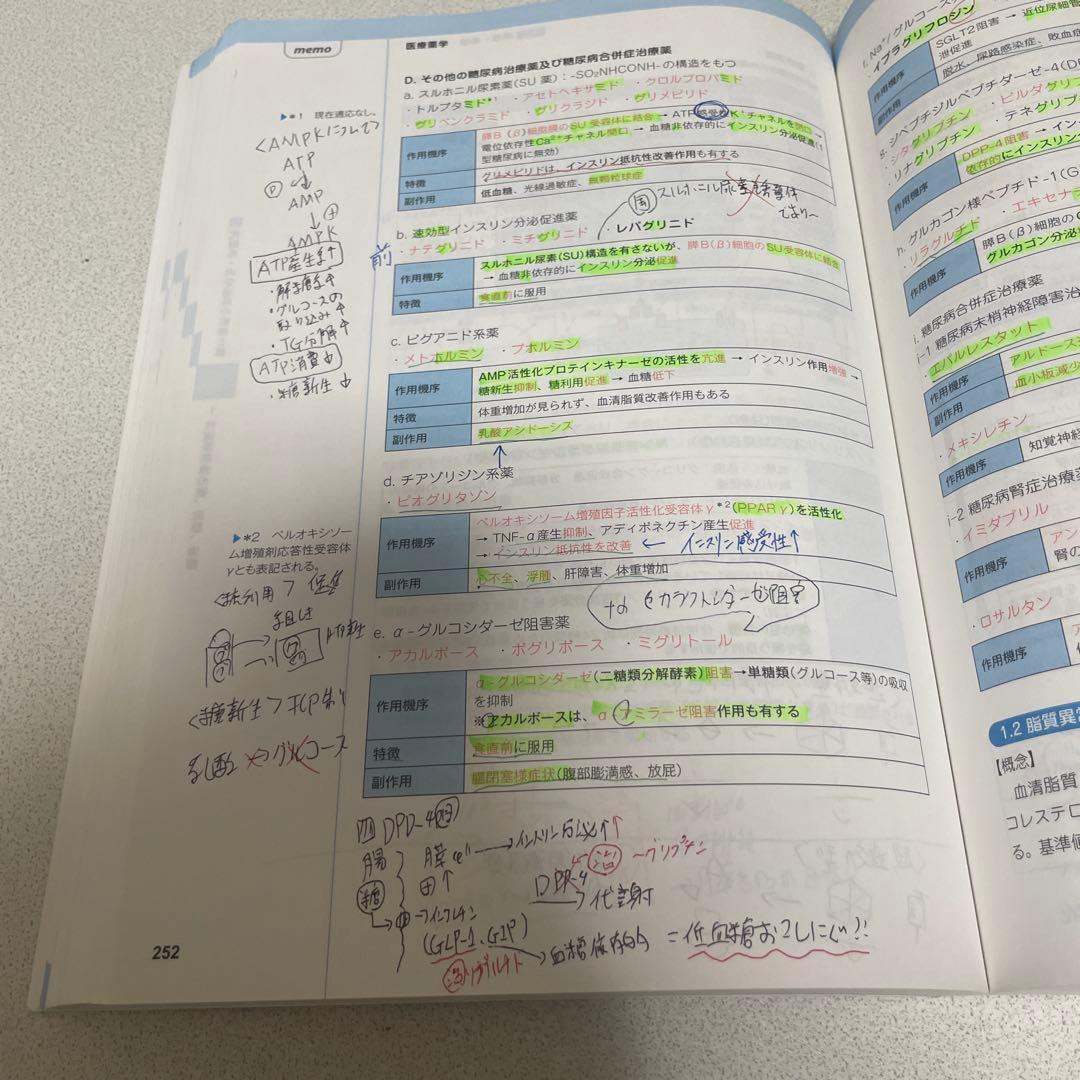 memo
医療薬学
D. その他の糖尿病治療薬及び糖尿病合併症治療薬
a. スルホニル尿素薬(SU 薬)：-SO₂NHCONH- の構造をもつ
・トルブタミド*¹ ・アセトヘキサミド ・クロルプロパミド
・グリベンクラミド ・グリクラジド ・グリメピリド
▶*1 現在適応なし。
作用機序
膵B(β)細胞膜のSU 受容体に結合 → ATP 感受性 K⁺チャネルを閉口 →
電位依存性 Ca²⁺チャネル開口 → 血糖非依存的にインスリン分泌促進(1
型糖尿病に無効)
特徴
グリメピリドは、インスリン抵抗性改善作用も有する
副作用
低血糖、光線過敏症、無顆粒球症
b. 速効型インスリン分泌促進薬
・ナテグリニド ・ミチグリニド ・レパグリニド
前
作用機序
スルホニル尿素(SU)構造を有さないが、膵B(β)細胞のSU受容体に結合
→ 血糖非依存的にインスリン分泌促進
特徴
食直前に服用
c. ビグアニド系薬
・メトホルミン ・ブホルミン
作用機序
AMP 活性化プロテインキナーゼの活性を亢進 → インスリン作用増強 →
糖新生抑制、糖利用促進 → 血糖低下
特徴
体重増加が見られず、血清脂質改善作用もある
副作用
乳酸アシドーシス
d. チアゾリジン系薬
・ピオグリタゾン
作用機序
ペルオキシソーム増殖因子活性化受容体γ*²(PPARγ)を活性化
→ TNF-α産生抑制、アディポネクチン産生促進
→ インスリン抵抗性を改善 ← インスリン感受性↑
副作用
心不全、浮腫、肝障害、体重増加
▶*2 ペルオキシソー
ム増殖剤応答性受容体
γとも表記される。
e. α-グルコシダーゼ阻害薬
・アカルボース ・ボグリボース ・ミグリトール
作用機序
α-グルコシダーゼ(二糖類分解酵素)阻害→単糖類(グルコース等)の吸収
を抑制
※アカルボースは、αアミラーゼ阻害作用も有する
特徴
食直前に服用
副作用
腸閉塞様症状(腹部膨満感、放屁)
ATP
AMP
AMPK
ATP産生↑
・解糖↑
・グルコースの
取り込み↑
・TG分解↑
ATP消費↓
・糖新生↓
<糖利用> 促進
腸
糖
インクレチン
(GLP-1、GIP)
DPP-4
代謝
→血糖依存的
=低血糖おこしにくい!!
252
f. Na⁺/グルコース
イプラグリフロジン
作用機序
SGLT2阻害 → 近位尿細管
泄促進
副作用
脱水、尿路感染症、敗血症
g. ジペプチジルペプチダーゼ-4(D
・シタグリプチン ・ビルダグリプチ
・リナグリプチン ・テネグリプ
作用機序
DPP-4 阻害 → イン
依存的にインスリン
h. グルカゴン様ペプチド-1(G
・リラグルチド ・エキセナ
作用機序
膵B(β)細胞の
グルカゴン分泌
i. 糖尿病合併症治療薬
i-1 糖尿病末梢神経障害治
・エパルレスタット
作用機序
アルドース
副作用
血小板減少
・メキシレチン
作用機序
知覚神経
i-2 糖尿病腎症治療薬
・イミダプリル
作用機序
アン
腎の
・ロサルタン
作用機序
1.2 脂質異常
【概念】
血清脂質
コレステロ
る。基準値